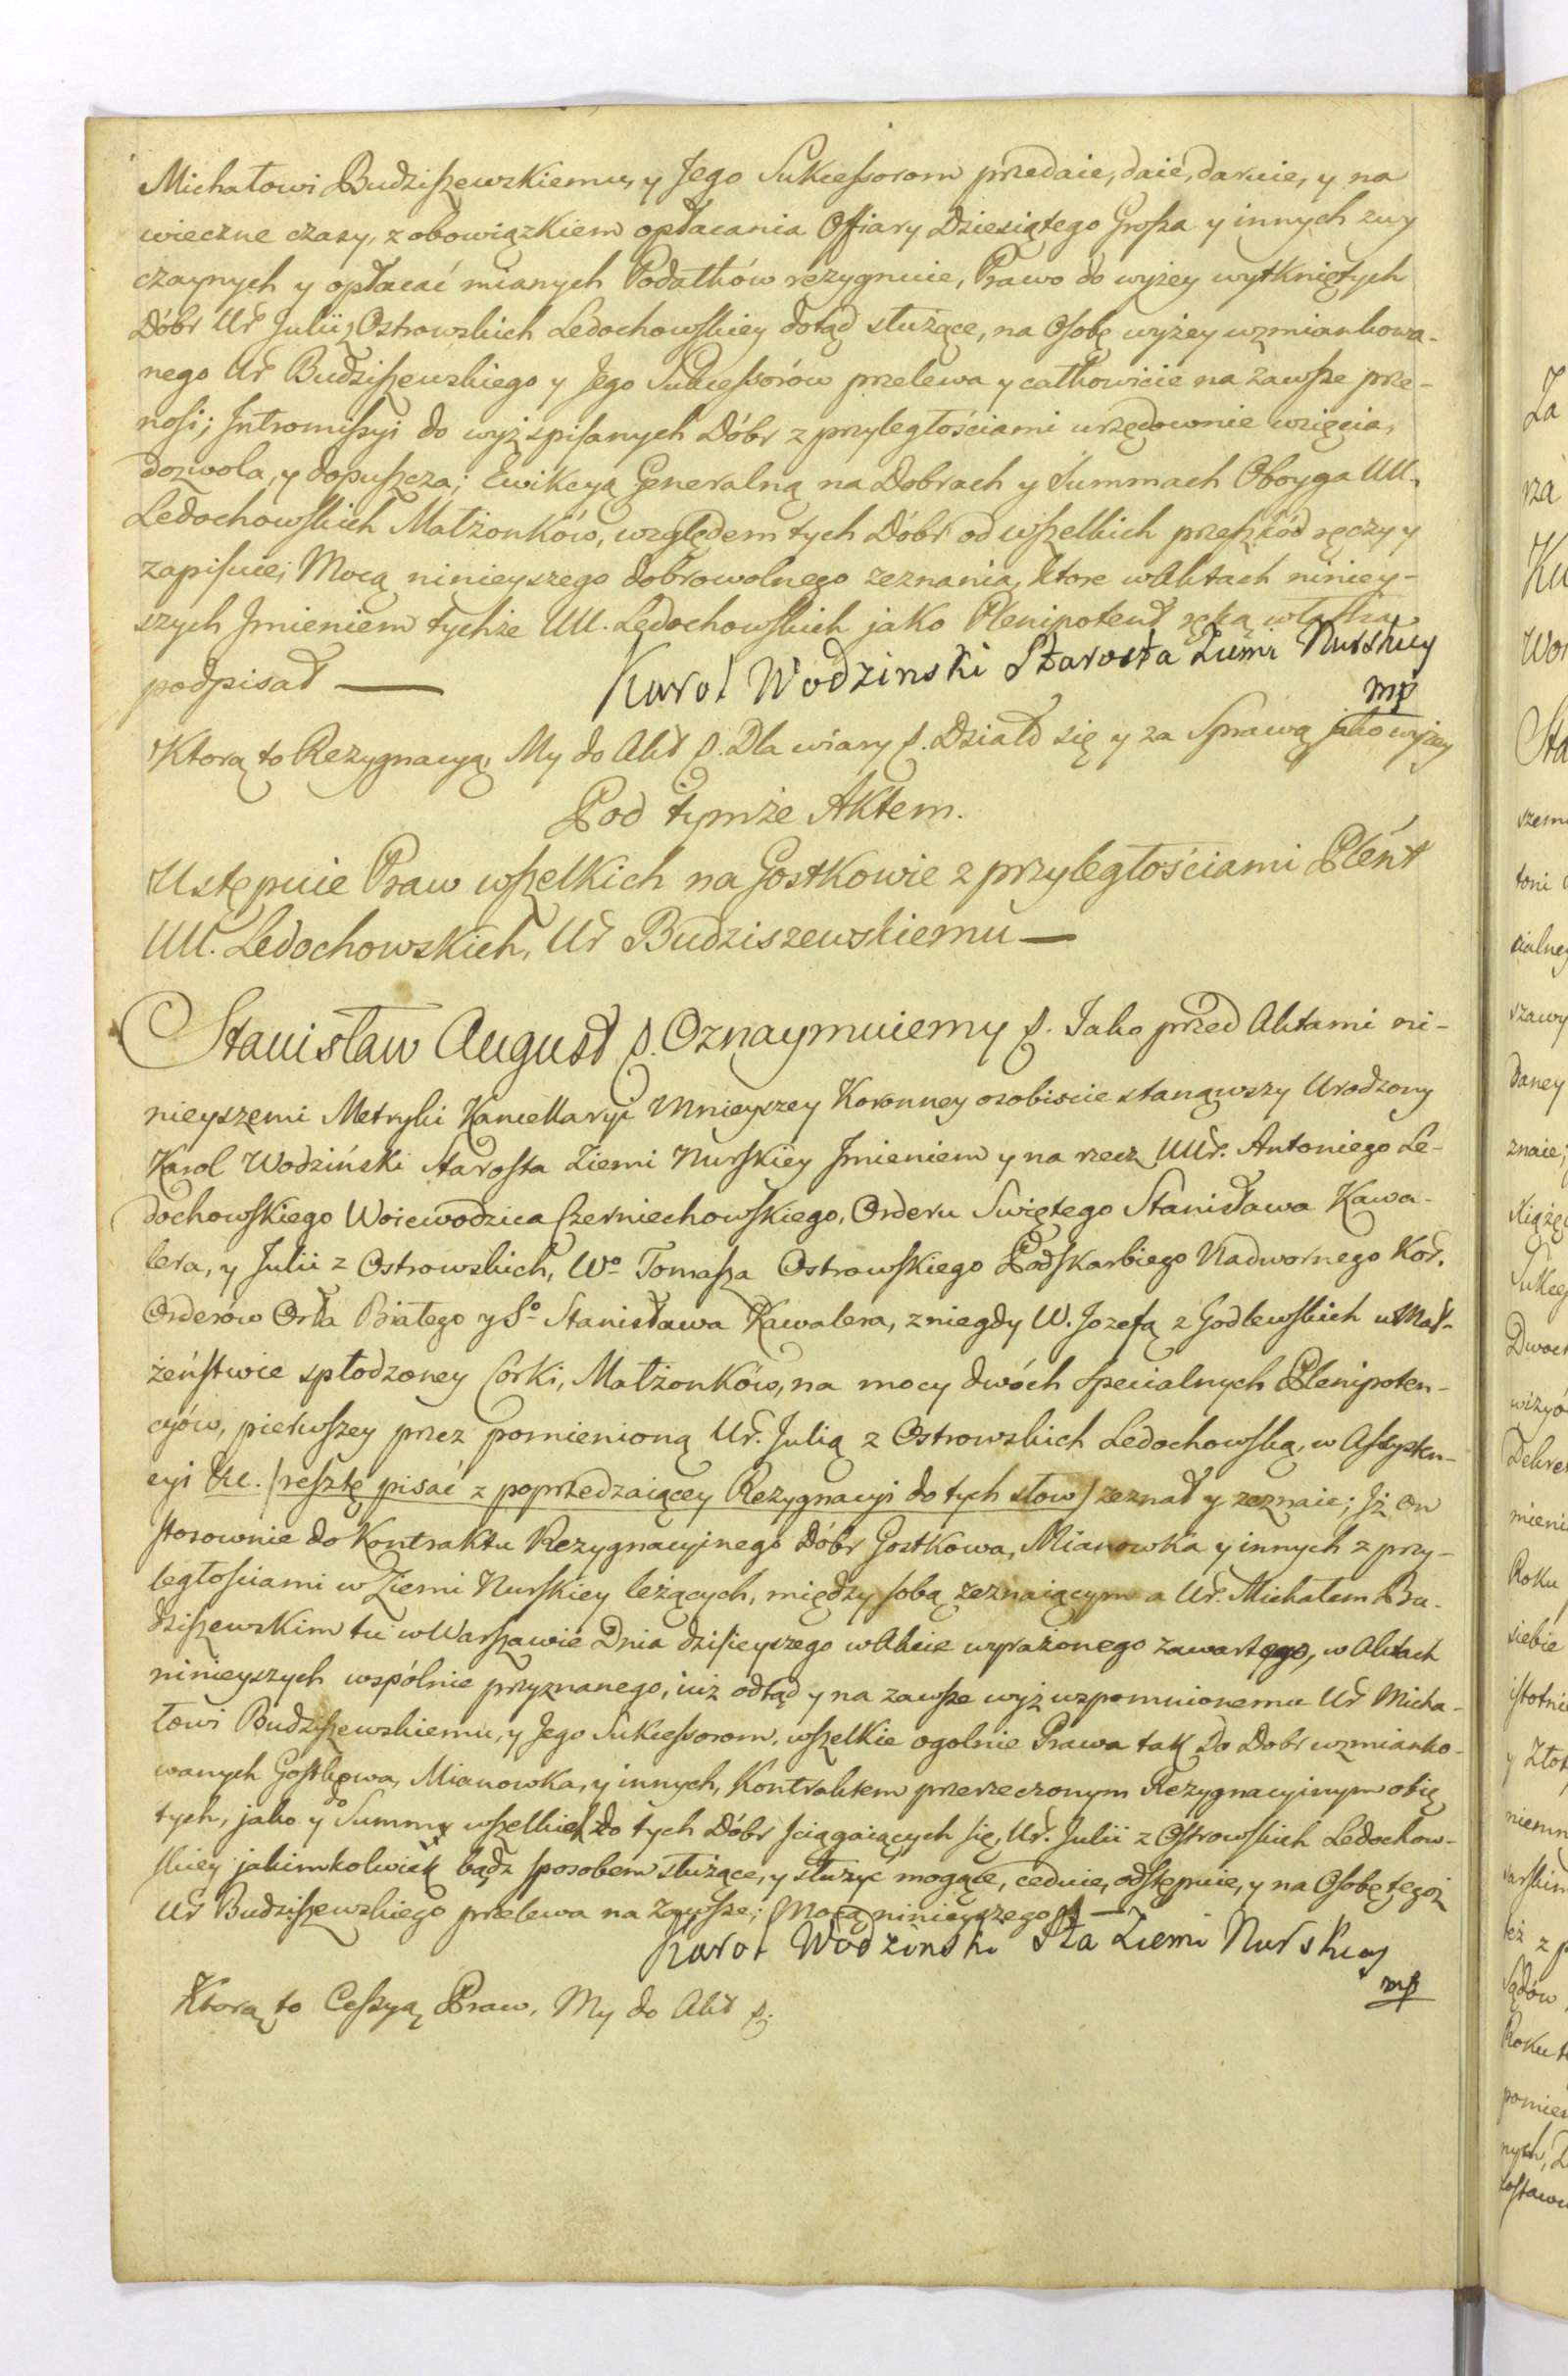 Michałowi Budziszewskiemu, y Jego Sukcessorom przedaie, daie, daruie, y na
wieczne czasy, z obowiązkiem opłacania Offiary Dziesiątego Grosza y innych zwy
czaynych y opłacać mianych Podatków rezygnuie, Prawo do wyżey wytkniętych
Dóbr Ur Julii z Ostrowskich Ledochowskiey dotąd służące, na Osobę wyżey wzmiankowa-
nego Ur Budziszewskiego y Jego Sukcessorów przelewa y całkowicie na zawsze prze-
nosi; Intromissyi do wyż spisanych Dóbr z przyległościami urzędownie wzięcia,
dozwola, y dopuszcza; Ewikcyą Generalną na Dobrach y Summach Oboyga UU.
Ledochowskich Małżonków, względem tych Dóbr od wszelkich przeszkód ręczy y
zapisuie; Mocą ninieyszego dobrowolnego zeznania, ktore w Aktach niniey-
szych Imieniem tychże UU. Ledochowskich jako Plenipotent ręką własną
podpisał —
Karol Wodzinski Starosta Ziemi Nurskiey
mp
Ktorą to Rezygnacyą, My do Akt p. Dla wiary p. Działo się y za Sprawą jako wyżey
Pod tymże Aktem.
Ustępuie Praw wszelkich na Gostkowie z przyległościami Plént
UU. Ledochowskich, Ur Budziszewskiemu —
Stanisław August p. Oznaymuiemy p. Iako przed Aktami ni-
nieyszemi Metryki Kancellaryi Mnieyszey Koronney osobiscie stanąwszy Urodzony
Karol Wodziński Starosta Ziemi Nurskiey Imieniem y na rzecz UUr. Antoniego Le-
dochowskiego Woiewodzica Czerniechowskiego, Orderu Swiętego Stanisława Kawa-
lera, y Julii z Ostrowskich, Wo Tomasza Ostrowskiego Podskarbiego Nadwornego Kor.
Orderów Orła Białego y So Stanisława Kawalera, z niegdy W. Jozefą z Godlewskich w Mał-
żeństwie spłodzoney Corki, Małżonków, na mocy dwóch Specialnych Plenipoten-
cyów, pierwszey przez pomienioną Ur. Julią z Ostrowskich Ledochowską, w Assysten-
cyi &c. /resztę pisać z poprzedzaiącey Rezygnacyi do tych słow/ zeznał y zeznaie; Iż on
stosownie do Kontraktu Rezygnacyinego Dóbr Gostkowa, Mianowka y innych z przy-
ległościami w Ziemi Nurskiey leżących, między sobą zeznaiącym a Ur. Michałem Bu-
dziszewskim tu w Warszawie Dnia dzisieyszego w Akcie wyrażonego zawartego, w Aktach
ninieyszych wspólnie przyznanego, iuż odtąd y na zawsze wyż wspomnionemu Ur Micha-
łowi Budziszewskiemu, y Jego Sukcessorom, wszelkie ogolnie Prawa tak do Dobr wzmianko-
wanych Gostkowa, Mianowka, y innych, Kontraktem przerzeczonym Rezygnacyinym obię
tych, jako y do Summ wszelkich do tych Dóbr ściągaiących się, Ur. Julii z Ostrowskich Ledochow-
skiey jakimkolwiek bądz sposobem służące, y służyć mogące, ceduie, odstępuie, y na Osobę tegoż
Ur Budziszewskiego przelewa na zawsze; Mocą ninieyszego p —
Karol Wodzinski Sta Ziemi Nurskiey
mp
Ktorą to Cessyą Praw, My do Akt p.